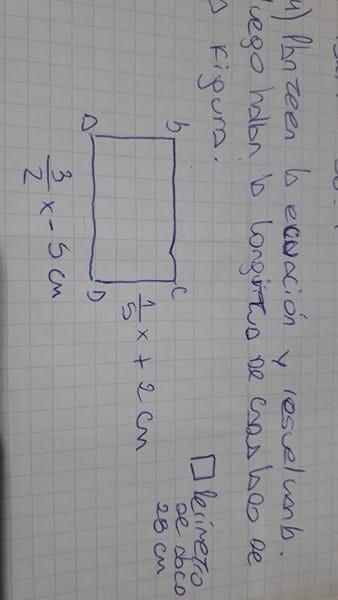 4) Planteen la ecuación y resuelvanla.
luego hallan la longitud de cada lado de
la Figura.
B C
A D
1/5 x + 2 cm
3/2 x - 5 cm
Perimetro
de abcd
28 cm